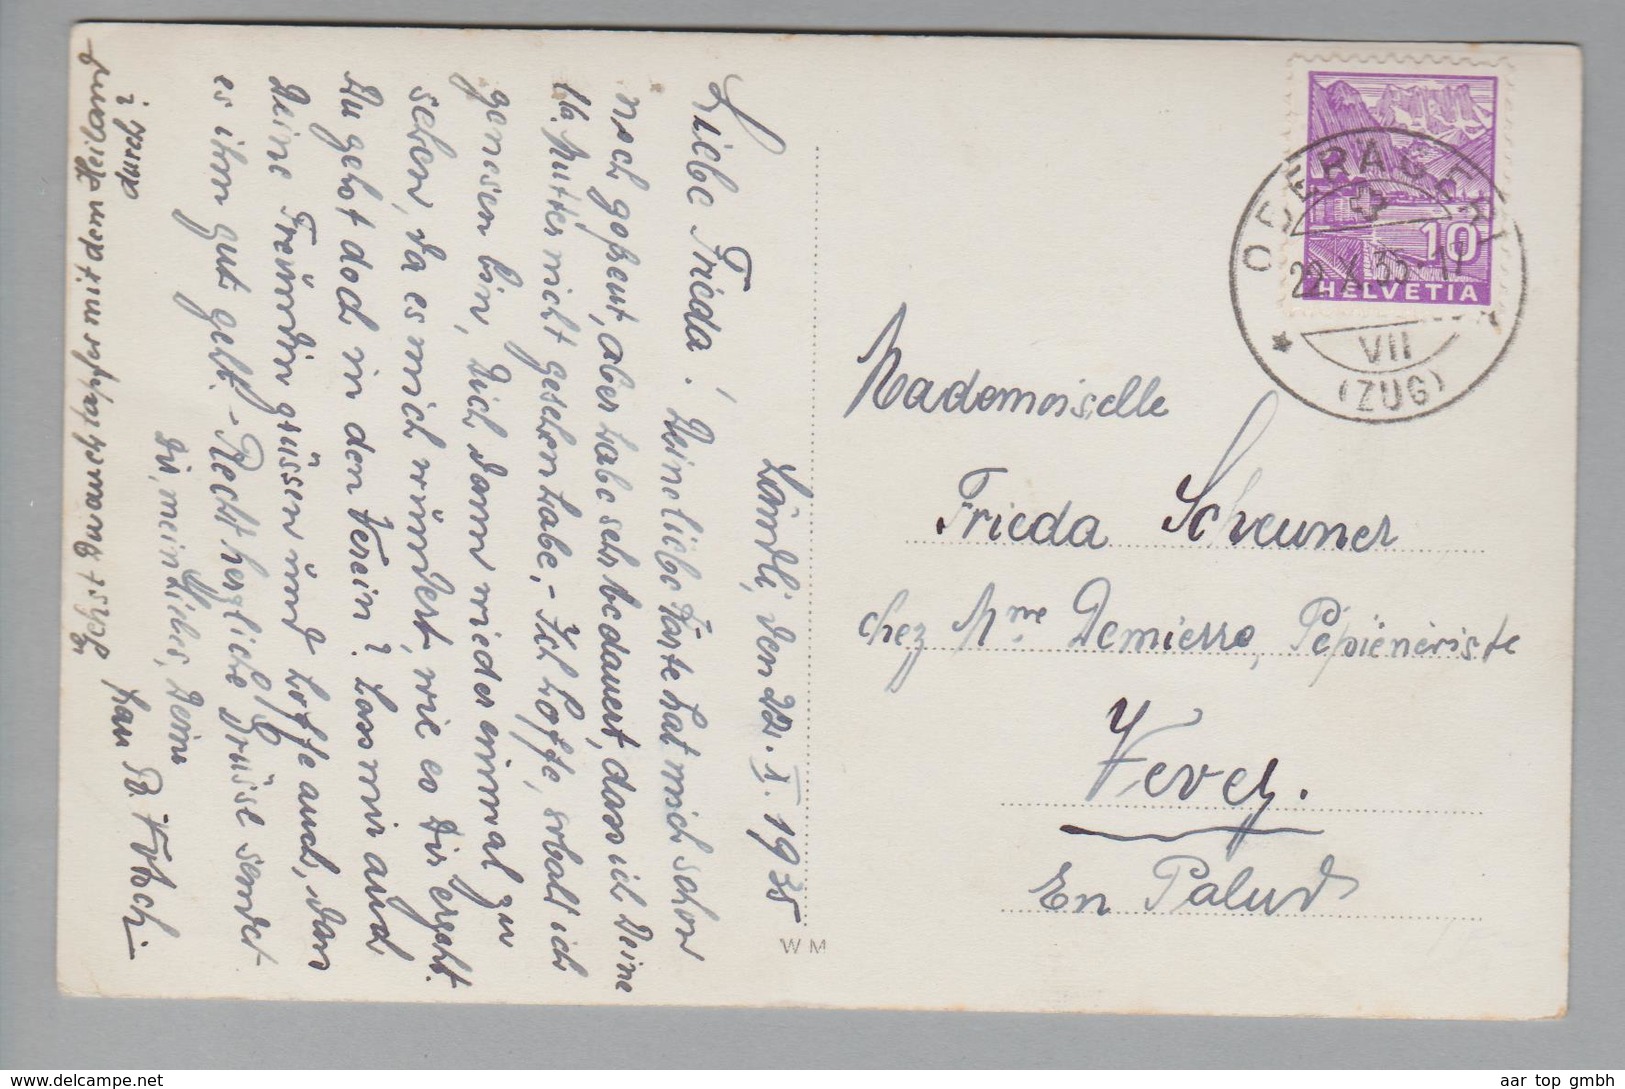 Ländli, den 22. X. 1935
Liebe Frieda! Deine liebe Karte hat mich schon
noch gefreut, aber habe sehr bedauert, dass ich Deine
lb. Mutter nicht gesehen habe. - Ich hoffe, sobald ich
genesen bin, Dich dann wieder einmal zu
sehen, da es mich wundert, wie es Dir ergeht.
Du gehst doch in den Verein? Lass mir auch
Deine Freundin grüssen und hoffe auch, dass
es ihm gut geht. - Recht herzliche Grüsse sendet
Dir, mein Liebes, Deine
Gehst Du auch tapfer mit dem Heiland
durch?
WM
Mademoiselle
Frieda Scheuner
chez Mme Demierre, Pépiènériste
Vevey.
En Palud
OBERAEGERI
22.X.35-17
VII
(ZUG)
10
HELVETIA
www.delcampe.net
aar top gmbh